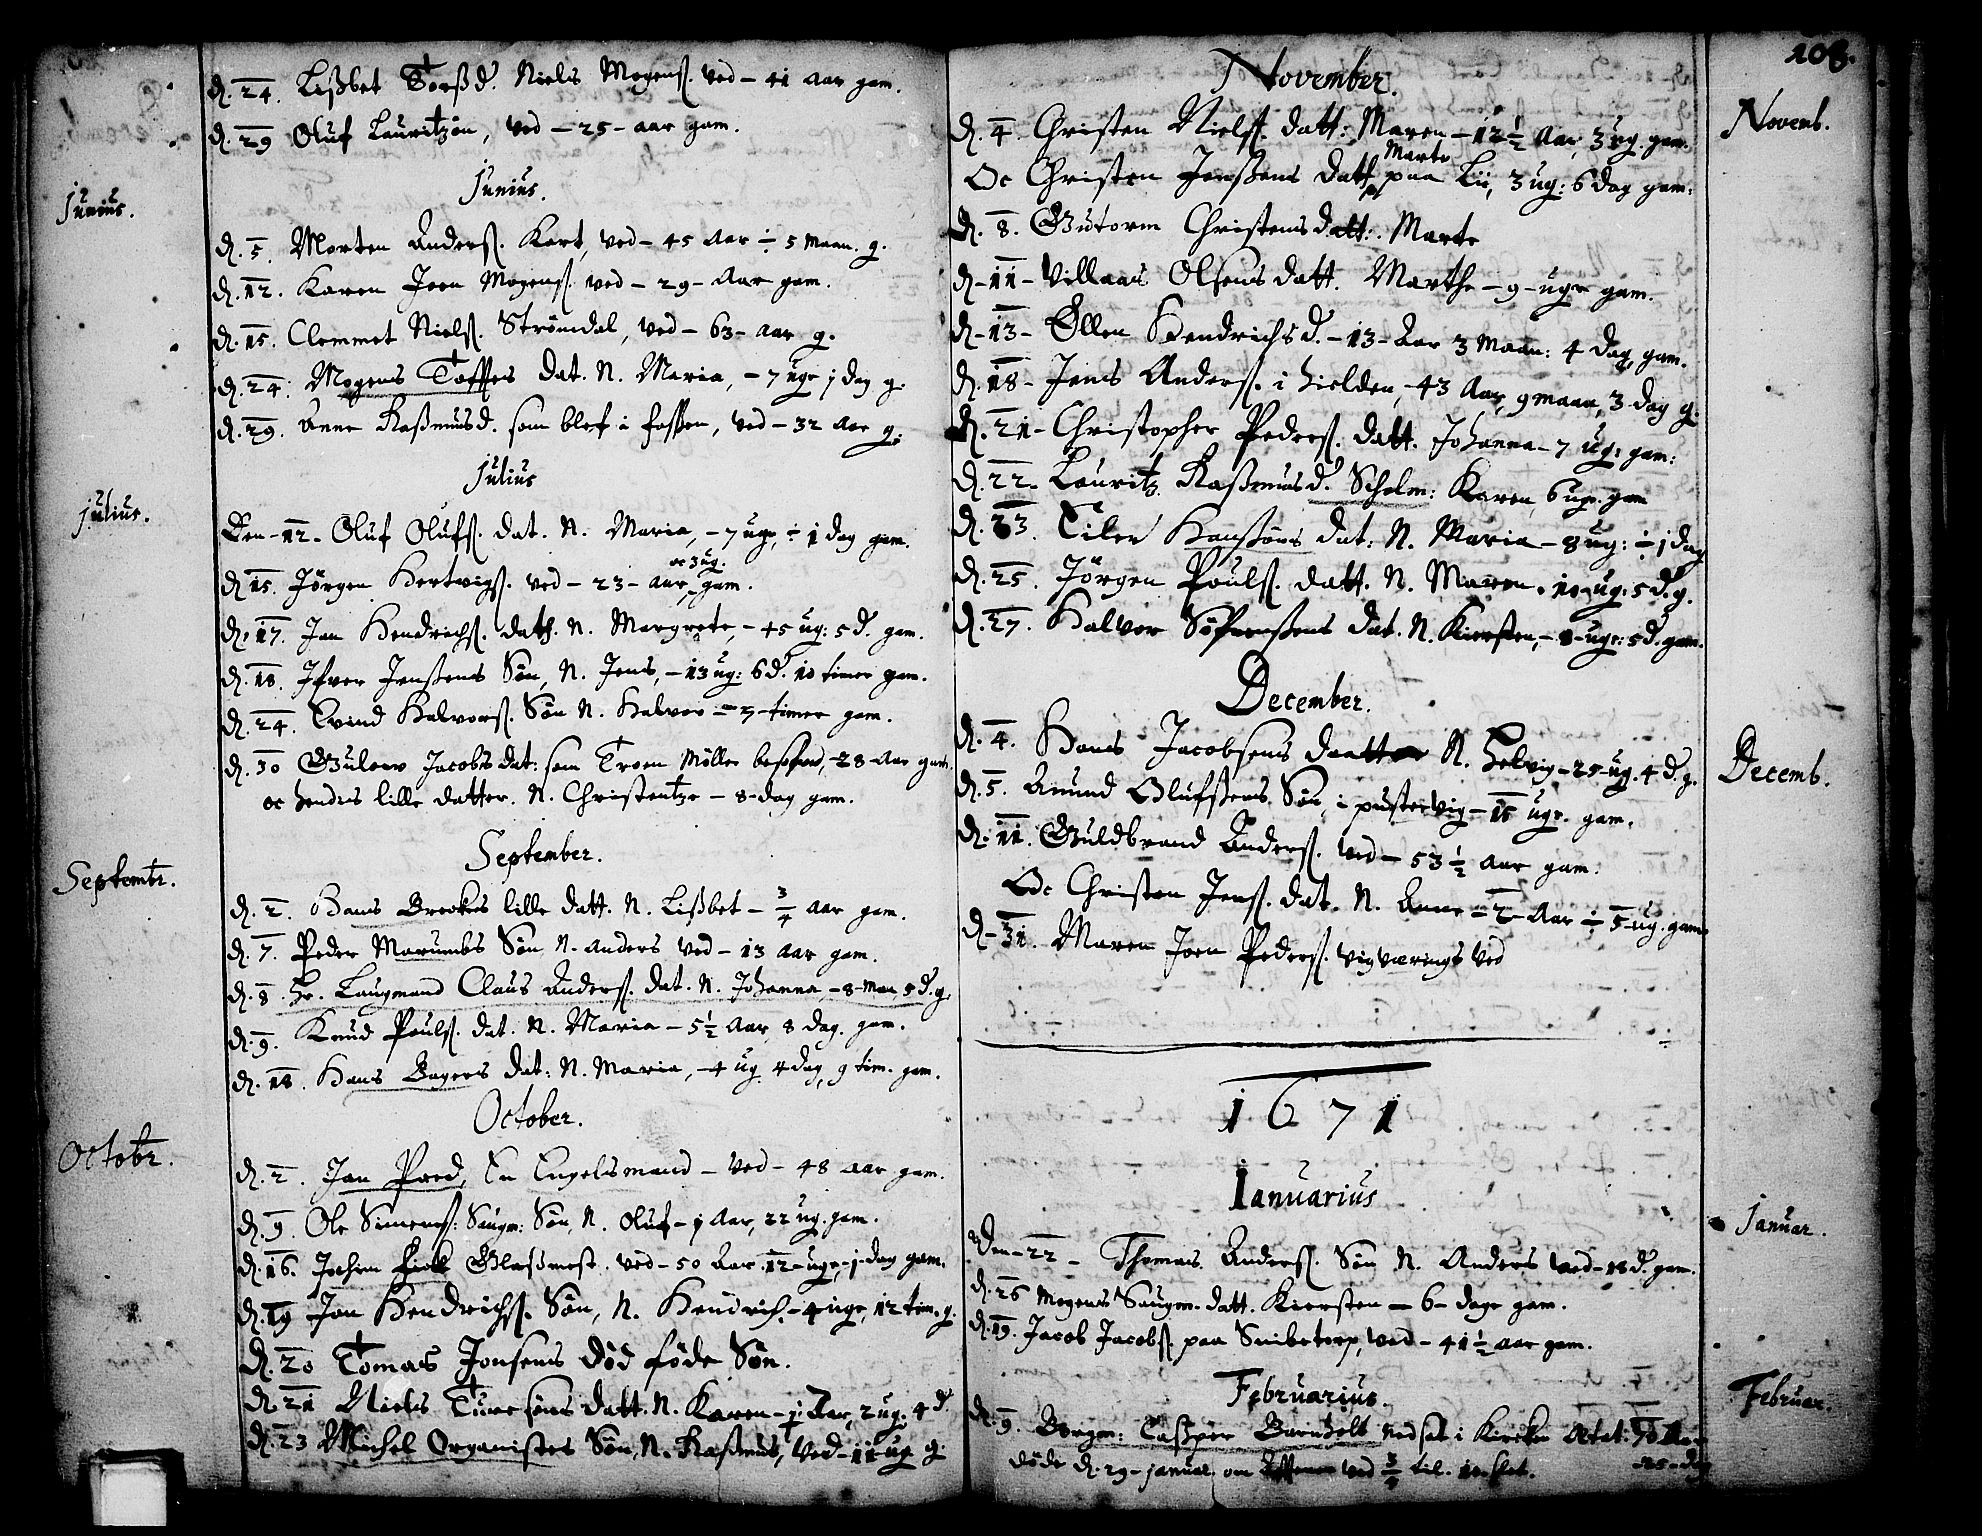 d. 24. Lißbet Torßd. Niels Mogenß. ved - 41 aar gam.
d. 29 Oluf Lauritzøn, ved - 25 - aar gam.
Junius.
Junius.
d. 5. Morten Anderß. Kort, ved - 45 Aar ÷ 5 Maan. g.
d. 12. Karen Joen Mogenß. ved - 29 - Aar gam.
d. 15. Clemmet Nielß. Strømdal, ved - 63 - aar g.
d. 24. Mogens Toffes dat. N. Maria, - 7 uge 1 dag g.
d. 29. Anne Raßmusd. som blef i fossen, ved - 32 Aar g.
Julius
Julius.
Den - 12. Oluf Olufs. dat. N. Maria, - 7 uge, ÷ 1 dag gam.
oc 3 ug:
d. 15. Jørgen Hertvigß. ved - 23 - aar, gam.
d. 17. Jan Hendrichß. dath. N. Margrete, - 45 ug: 5 d. gam.
d. 18. Ifver Jenßens Søn, N. Jens, - 13 ug: 6 d. 10 timer gam.
d. 24. Evind Halvorß. Søn N. Halvor - 3 - timer gam.
d. 30 Gulow Jacobs dat: som Troen Møller besofved, - 28 - Aar gam.
oc hendis lille datter. N. Christentze - 8 - dag gam.
September.
Septembr.
d. 2. Hans Brockes lille datt. N. Lißbet - 3/4 aar gam.
d. 7. Peder Marumbs Søn N. Anders ved - 13 aar gam.
d. 8. Hr. Laugmand Claus Anderß. dat. N. Johanna, - 8 - Maa, 5 d. g.
d. 9. Knud Poulß. dat. N. Maria - 5 1/2 Aar, 8 dag. gam.
d. 18. Hans Bagers dat: N. Maria, - 4 ug 4 dag, 9 tim. gam.
October.
Octobr.
d. 2. Jan Poed, En Engelsmand - ved - 48 aar gam.
d. 9. Ole Simenß: Saugm: Søn, N. Oluf - 1 Aar, 22 ug. gam.
d. 16. Jochim Glaßmest. ved - 50 Aar 12 - uge, 1 - dag gam.
d. 19 Jan Hendrichß. Søn, N. Hendrich, - 4 uge, 12 tim. g.
d. 20 Tomas Jonsens død føde Søn.
d. 21 Niels Turesøns datt. N. Karen - 1 Aar, 2 ug: 4 d
d. 23 Michel Organistes Søn, N. Raßmus, ved - 11 ug g.
108.
November.
Novemb.
d. 4. Christen Nielß. datt: Maren - 12 1/2 Aar, 3 ug. gam.
Marte
Oc Christen Jenßens datt paa Lii, 3 ug: 6 dag gam:
d. 8. Gutorm Christens datt: Marte
d - 11 - Villaas Olsens datt. Marthe - 9 - uge gam.
d - 13 - Ellen Hendrichsd. - 13 - Aar 3 Maan: 4 dag, gam.
d. 18 - Jens Anderß. i hielden, 43 Aar, 9 maan, 3 dag g.
d. 21 - Christopher Pederß. datt. Johanna - 7 ug: gam:
d. 22. Lauritz Raßmusd. Scholm: Karen, 6 uge. gam
d. 23. Tiler Hanßøns dat: N. Maria - 8 ug: ÷ 1 dag
d. 25. Jörgen Poulß. datt. N. Maren. 10 - ug: 5 d. g.
d. 27. Halvor Söfrensens dat. N. Kiersten, - 8 - uge: 5 d. gam.
December.
Decemb.
d. 4. Hans Jacobsens daatter N. Helvig - 25 - ug. 4 d. g.
d. 5. Amund Olufsens Søn, i pustervig - 15 uge. gam.
d. 11. Guldbrand Anderß. ved - 53 1/2 Aar gam:
Oc Christen Jenß. dat. N. Anne - 2 - Aar ÷ 5 - ug. gam
d - 31. Maren Joen Pederß. Vigværings ved
1671
Ianuarius
Januar.
Den - 22 - Thomas Anderß. Søn N. Anders ved - 18 d. gam.
d. 26 Mogens Saugm. datt. Kiersten - 6 - dage gam.
d. 19. Jacob Jacobß. paa Snibetorp, ved - 41 1/2 aar gam.
Februarius.
Februar.
d. 9. Borgm: Caßper Barnholt nedsat i Kircken Ætat: 70 Aar
- 25 - dag
døde d. 29 - Januar. om ved 3/4 til. 10. slet.